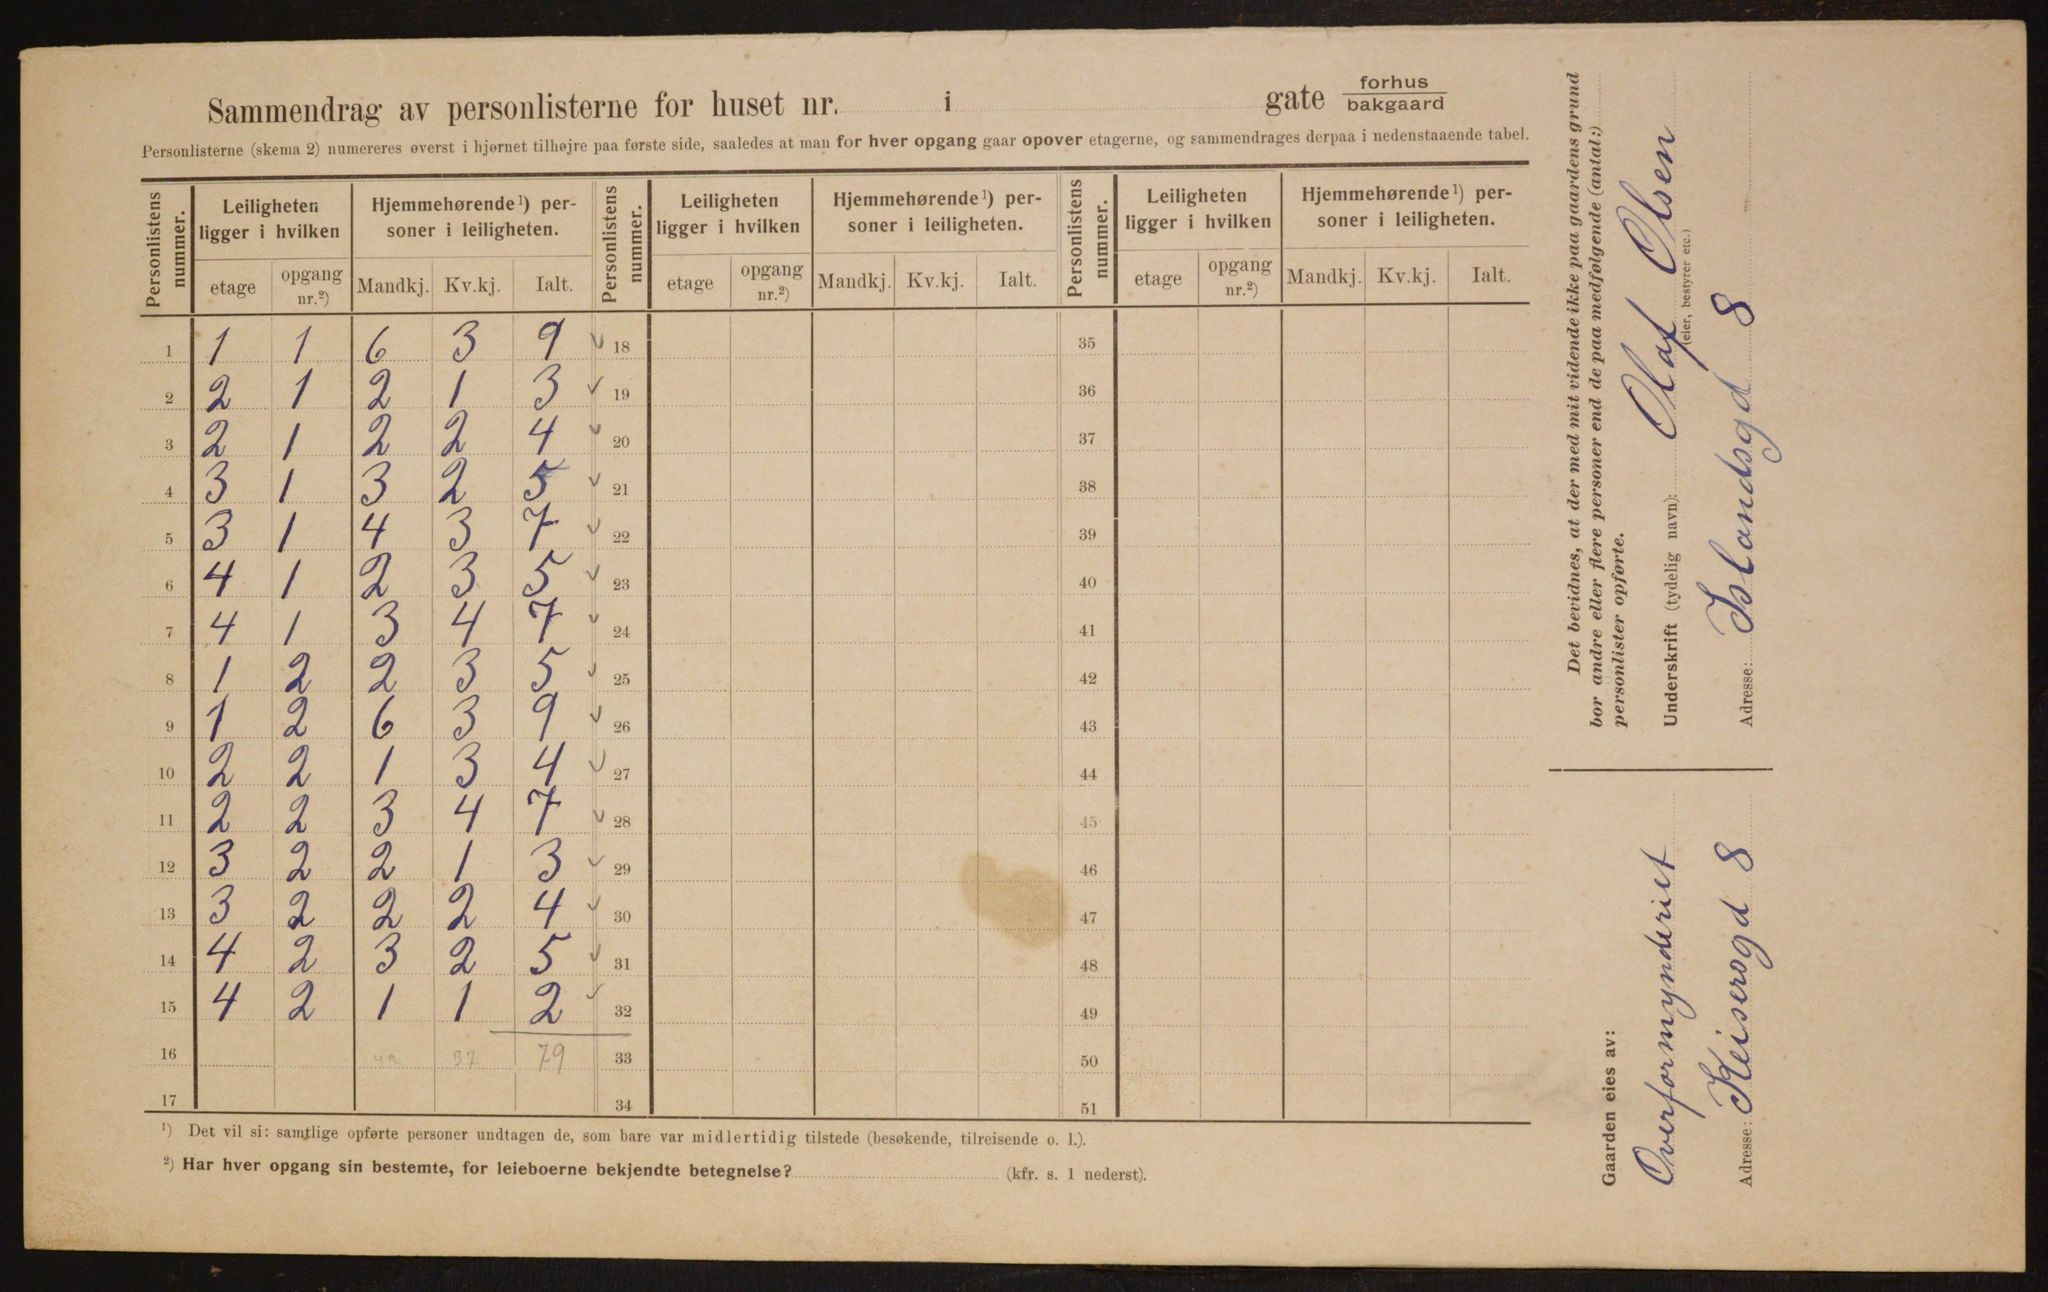 Sammendrag av personlisterne for huset nr. i gate forhus
bakgaard
Personlisterne (skema 2) numereres øverst i hjørnet tilhøjre paa første side, saaledes at man for hver opgang gaar opover etagerne, og sammendrages derpaa i nedenstaaende tabel.
Personlistens nummer. Leiligheten ligger i hvilken Hjemmehørende¹) personer i leiligheten. Personlistens nummer. Leiligheten ligger i hvilken Hjemmehørende¹) personer i leiligheten. Personlistens nummer. Leiligheten ligger i hvilken Hjemmehørende¹) personer i leiligheten.
etage opgang nr.²) Mandkj. Kv.kj. Ialt. etage opgang nr.²) Mandkj. Kv.kj. Ialt. etage opgang nr.²) Mandkj. Kv.kj. Ialt.
1 1 1 6 3 9 18 35
2 2 1 2 1 3 19 36
3 2 1 2 2 4 20 37
4 3 1 3 2 5 21 38
5 3 1 4 3 7 22 39
6 4 1 2 3 5 23 40
7 4 1 3 4 7 24 41
8 1 2 2 3 5 25 42
9 1 2 6 3 9 26 43
10 2 2 1 3 4 27 44
11 2 2 3 4 7 28 45
12 3 2 2 1 3 29 46
13 3 2 2 2 4 30 47
14 4 2 3 2 5 31 48
15 4 2 1 1 2 32 49
16 42 37 79 33 50
17 34 51
¹) Det vil si: samtlige opførte personer undtagen de, som bare var midlertidig tilstede (besøkende, tilreisende o. l.).
²) Har hver opgang sin bestemte, for leieboerne bekjendte betegnelse? (kfr. s. 1 nederst).
Det bevidnes, at der med mit vidende ikke paa gaardens grund
bor andre eller flere personer end de paa medfølgende (antal:)
personlister opførte.
Underskrift (tydelig navn): Olaf Olsen
(eier, bestyrer etc.)
Adresse: Islandsgd 8
Gaarden eies av:
Overformynderiet
Adresse: Keisersgd 8